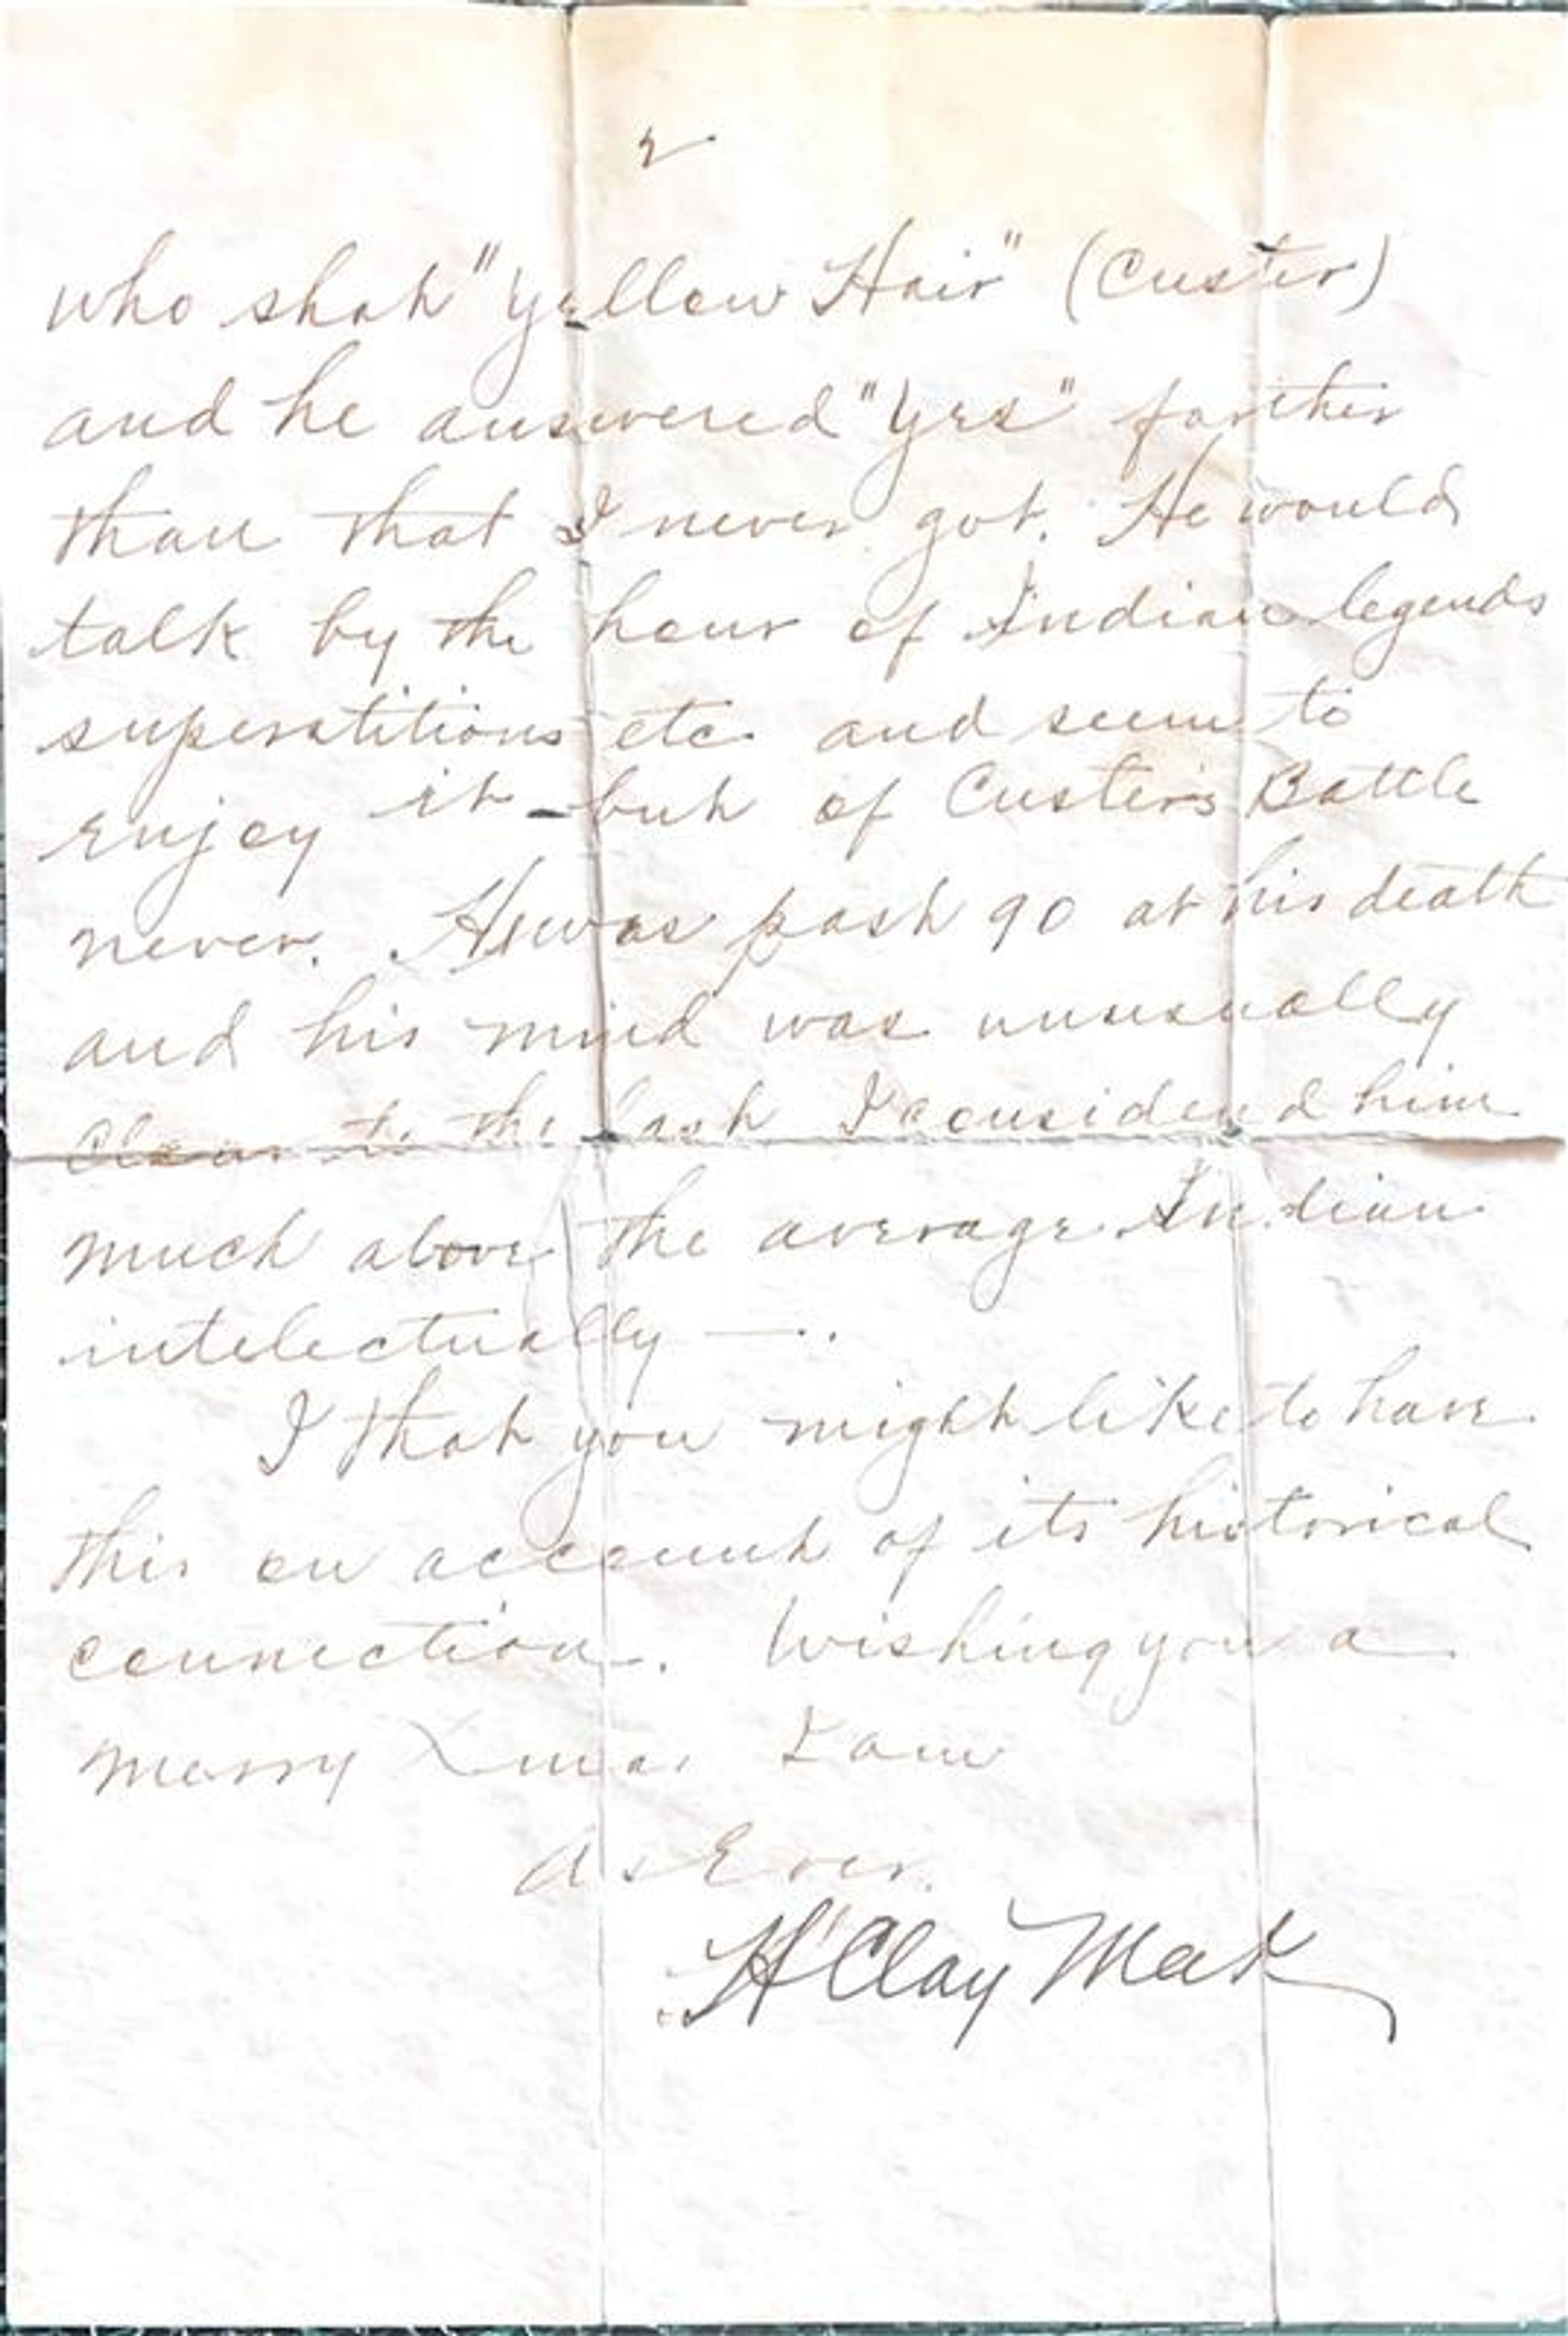 2
who shot "Yellow Hair" (Custer)
and he answered "Yes" farther
than that I never got. He would
talk by the hour of Indian legends
superstitions etc and seem to
enjoy it – but of Custer's Battle
never. He was past 90 at his death
and his mind was unusually
clear to the last I considered him
much above the average Indian
intelectually —.
I that you might like to have
this on account of its historical
connection. Wishing you a
Merry Xmas I am
As Ever.
H Clay